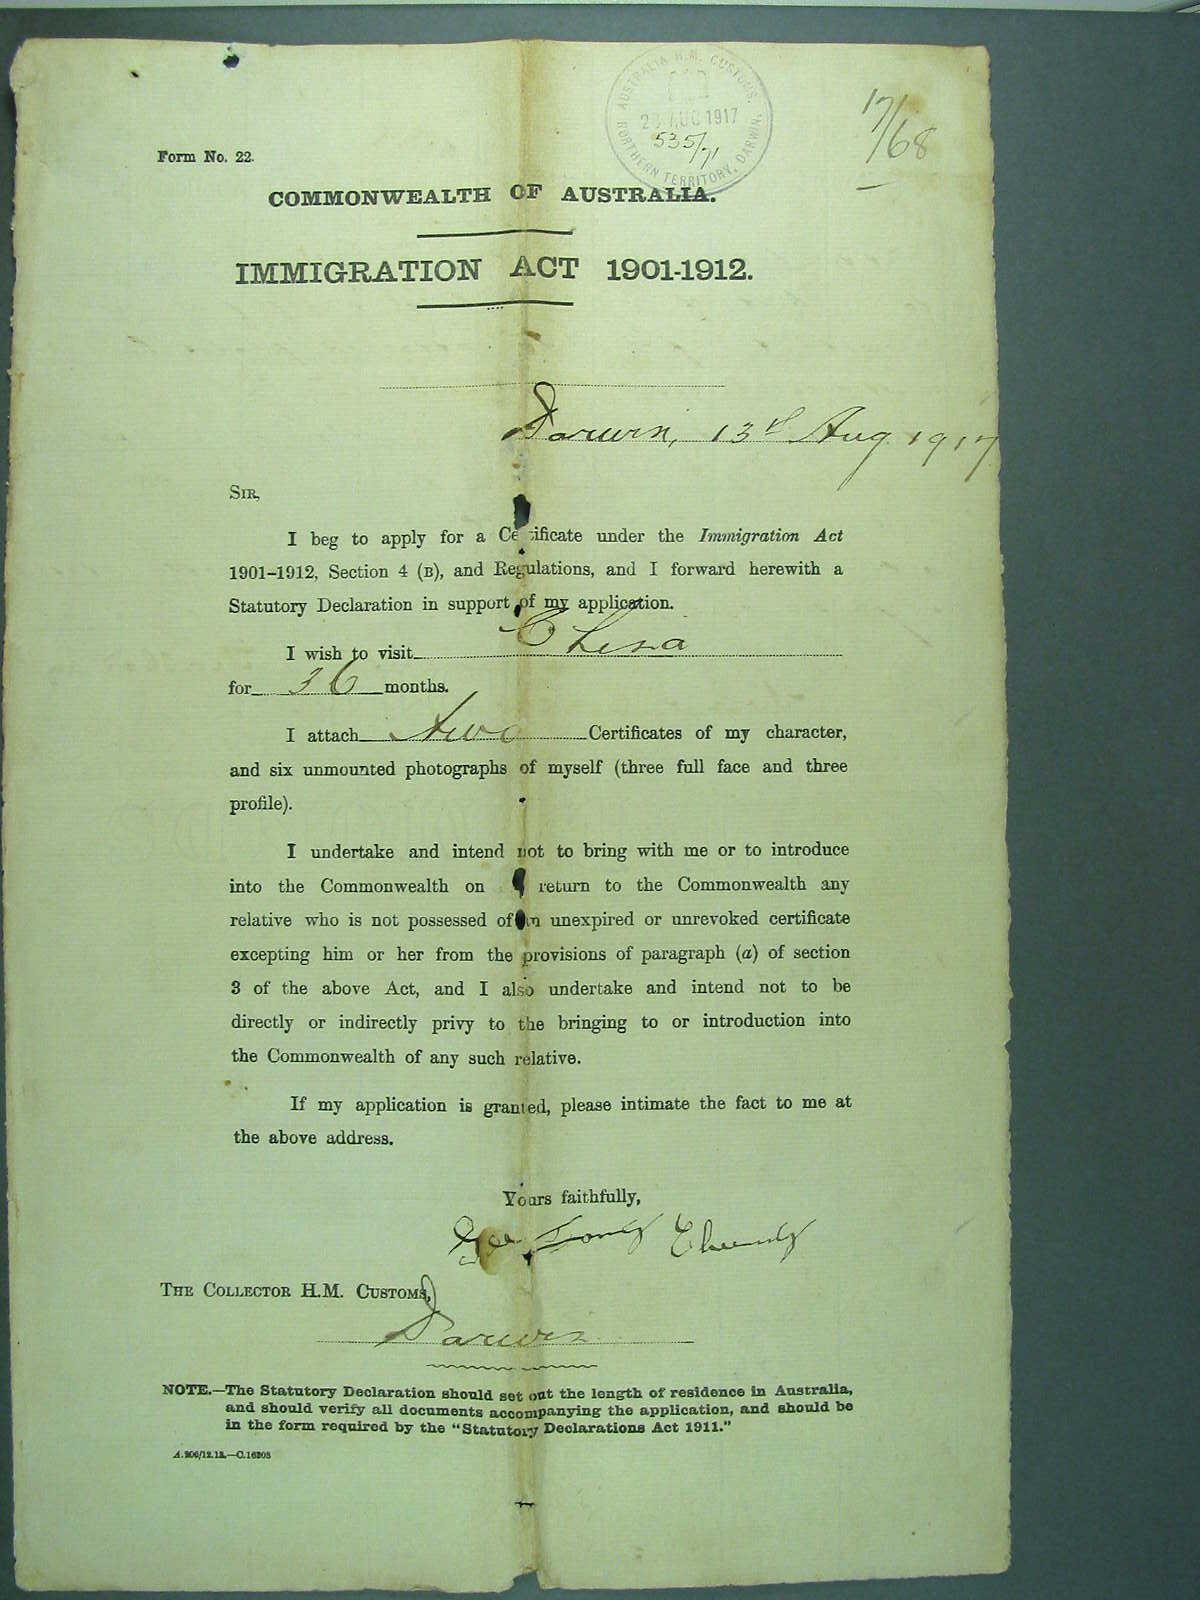 AUSTRALIA H.M. CUSTOMS.
AUG 1917
535/71
NORTHERN TERRITORY, DARWIN.
17/68
Form No. 22.
COMMONWEALTH OF AUSTRALIA.
IMMIGRATION ACT 1901-1912.
Darwin, 13th Aug 1917
SIR,
I beg to apply for a Ce ificate under the Immigration Act
1901–1912, Section 4 (B), and Regulations, and I forward herewith a
Statutory Declaration in support of my application.
I wish to visit China
for 36 months.
I attach two Certificates of my character,
and six unmounted photographs of myself (three full face and three
profile).
I undertake and intend not to bring with me or to introduce
into the Commonwealth on return to the Commonwealth any
relative who is not possessed of an unexpired or unrevoked certificate
excepting him or her from the provisions of paragraph (a) of section
3 of the above Act, and I also undertake and intend not to be
directly or indirectly privy to the bringing to or introduction into
the Commonwealth of any such relative.
If my application is granted, please intimate the fact to me at
the above address.
Yours faithfully,
THE COLLECTOR H.M. CUSTOMS,
Darwin
NOTE.—The Statutory Declaration should set out the length of residence in Australia,
and should verify all documents accompanying the application, and should be
in the form required by the "Statutory Declarations Act 1911."